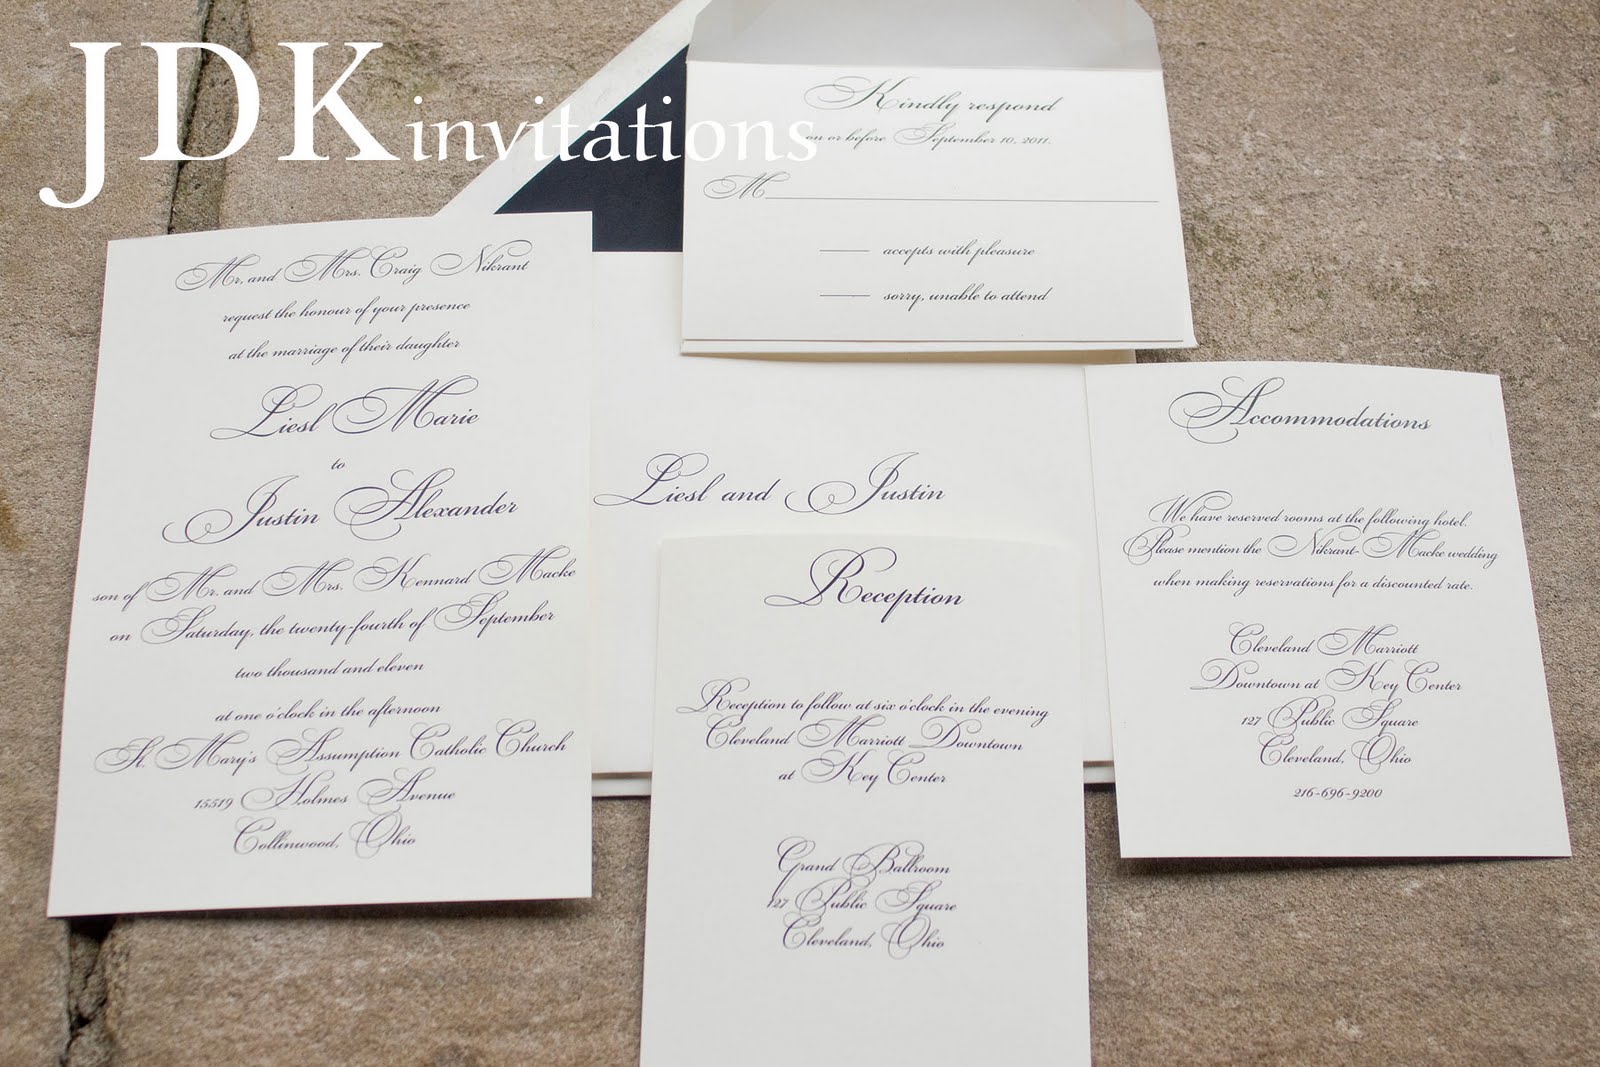 JDK invitations
Kindly respond
on or before September 10, 2011.
M
accepts with pleasure
sorry, unable to attend
Mr. and Mrs. Craig Nikrant
request the honour of your presence
at the marriage of their daughter
Liesl Marie
to
Justin Alexander
son of Mr. and Mrs. Kennard Macke
on Saturday, the twenty-fourth of September
two thousand and eleven
at one o'clock in the afternoon
St. Mary's Assumption Catholic Church
15519 Holmes Avenue
Collinwood, Ohio
Liesl and Justin
Reception
Reception to follow at six o'clock in the evening
Cleveland Marriott Downtown
at Key Center
Grand Ballroom
127 Public Square
Cleveland, Ohio
Accommodations
We have reserved rooms at the following hotel.
Please mention the Nikrant-Macke wedding
when making reservations for a discounted rate.
Cleveland Marriott
Downtown at Key Center
127 Public Square
Cleveland, Ohio
216-696-9200